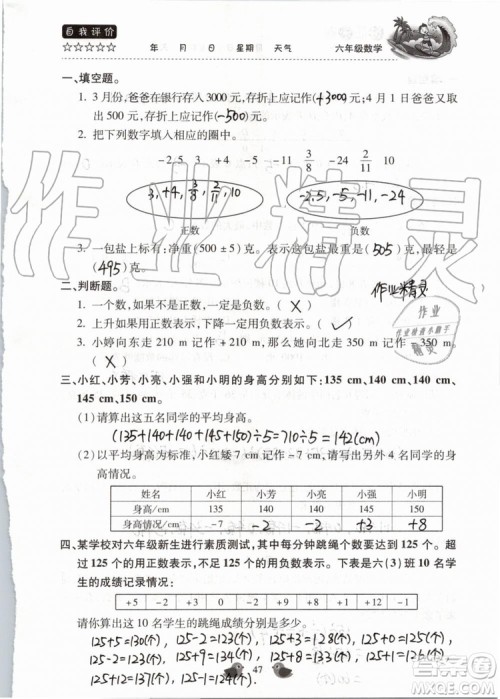 自我评价
☆☆☆☆☆ 年 月 日 星期 天气 六年级数学
一、填空题。
1. 3月份,爸爸在银行存入3000元,存折上应记作(+3000)元;4月1日爸爸又取
出500元,存折上应记作(-500)元。
2. 把下列数字填入相应的圈中。
-2.5 3 +4 -5 -11 3/8 -24 2/11 10
3, +4, 3/8, 2/11, 10 -2.5, -5, -11, -24
正数 负数
3. 一包盐上标有:净重(500±5)克。表示这包盐最重是(505)克,最轻是
(495)克。
二、判断题。
1. 一个数,如果不是正数,一定是负数。(X)
2. 上升如果用正数表示,下降一定用负数表示。(√)
3. 小婷向东走210 m记作+210 m,那么她向北走350 m记作-350 m。
(X)
作业精灵
三、小红、小芳、小亮、小强和小明的身高分别如下:135 cm、140 cm、140 cm、
145 cm、150 cm。
(1)请算出这五名同学的平均身高。
(135+140+140+145+150)÷5=710÷5=142(cm)
(2)以平均身高为标准,小红矮7 cm记作-7 cm,请写出另外4名同学的身
高情况。
姓名 小红 小芳 小亮 小强 小明
身高/cm 135 140 140 145 150
身高情况/cm -7 -2 -2 +3 +8
四、某学校对六年级新生进行素质测试,其中每分钟跳绳个数要达到125个。超
过125个的用正数表示,不足125个的用负数表示。下表是六(3)班10名学
生的成绩记录情况:
请你算出这10名学生的跳绳成绩分别是多少。
125+5=130(个), 125-2=123(个), 125+3=128(个), 125+0=125(个)
47